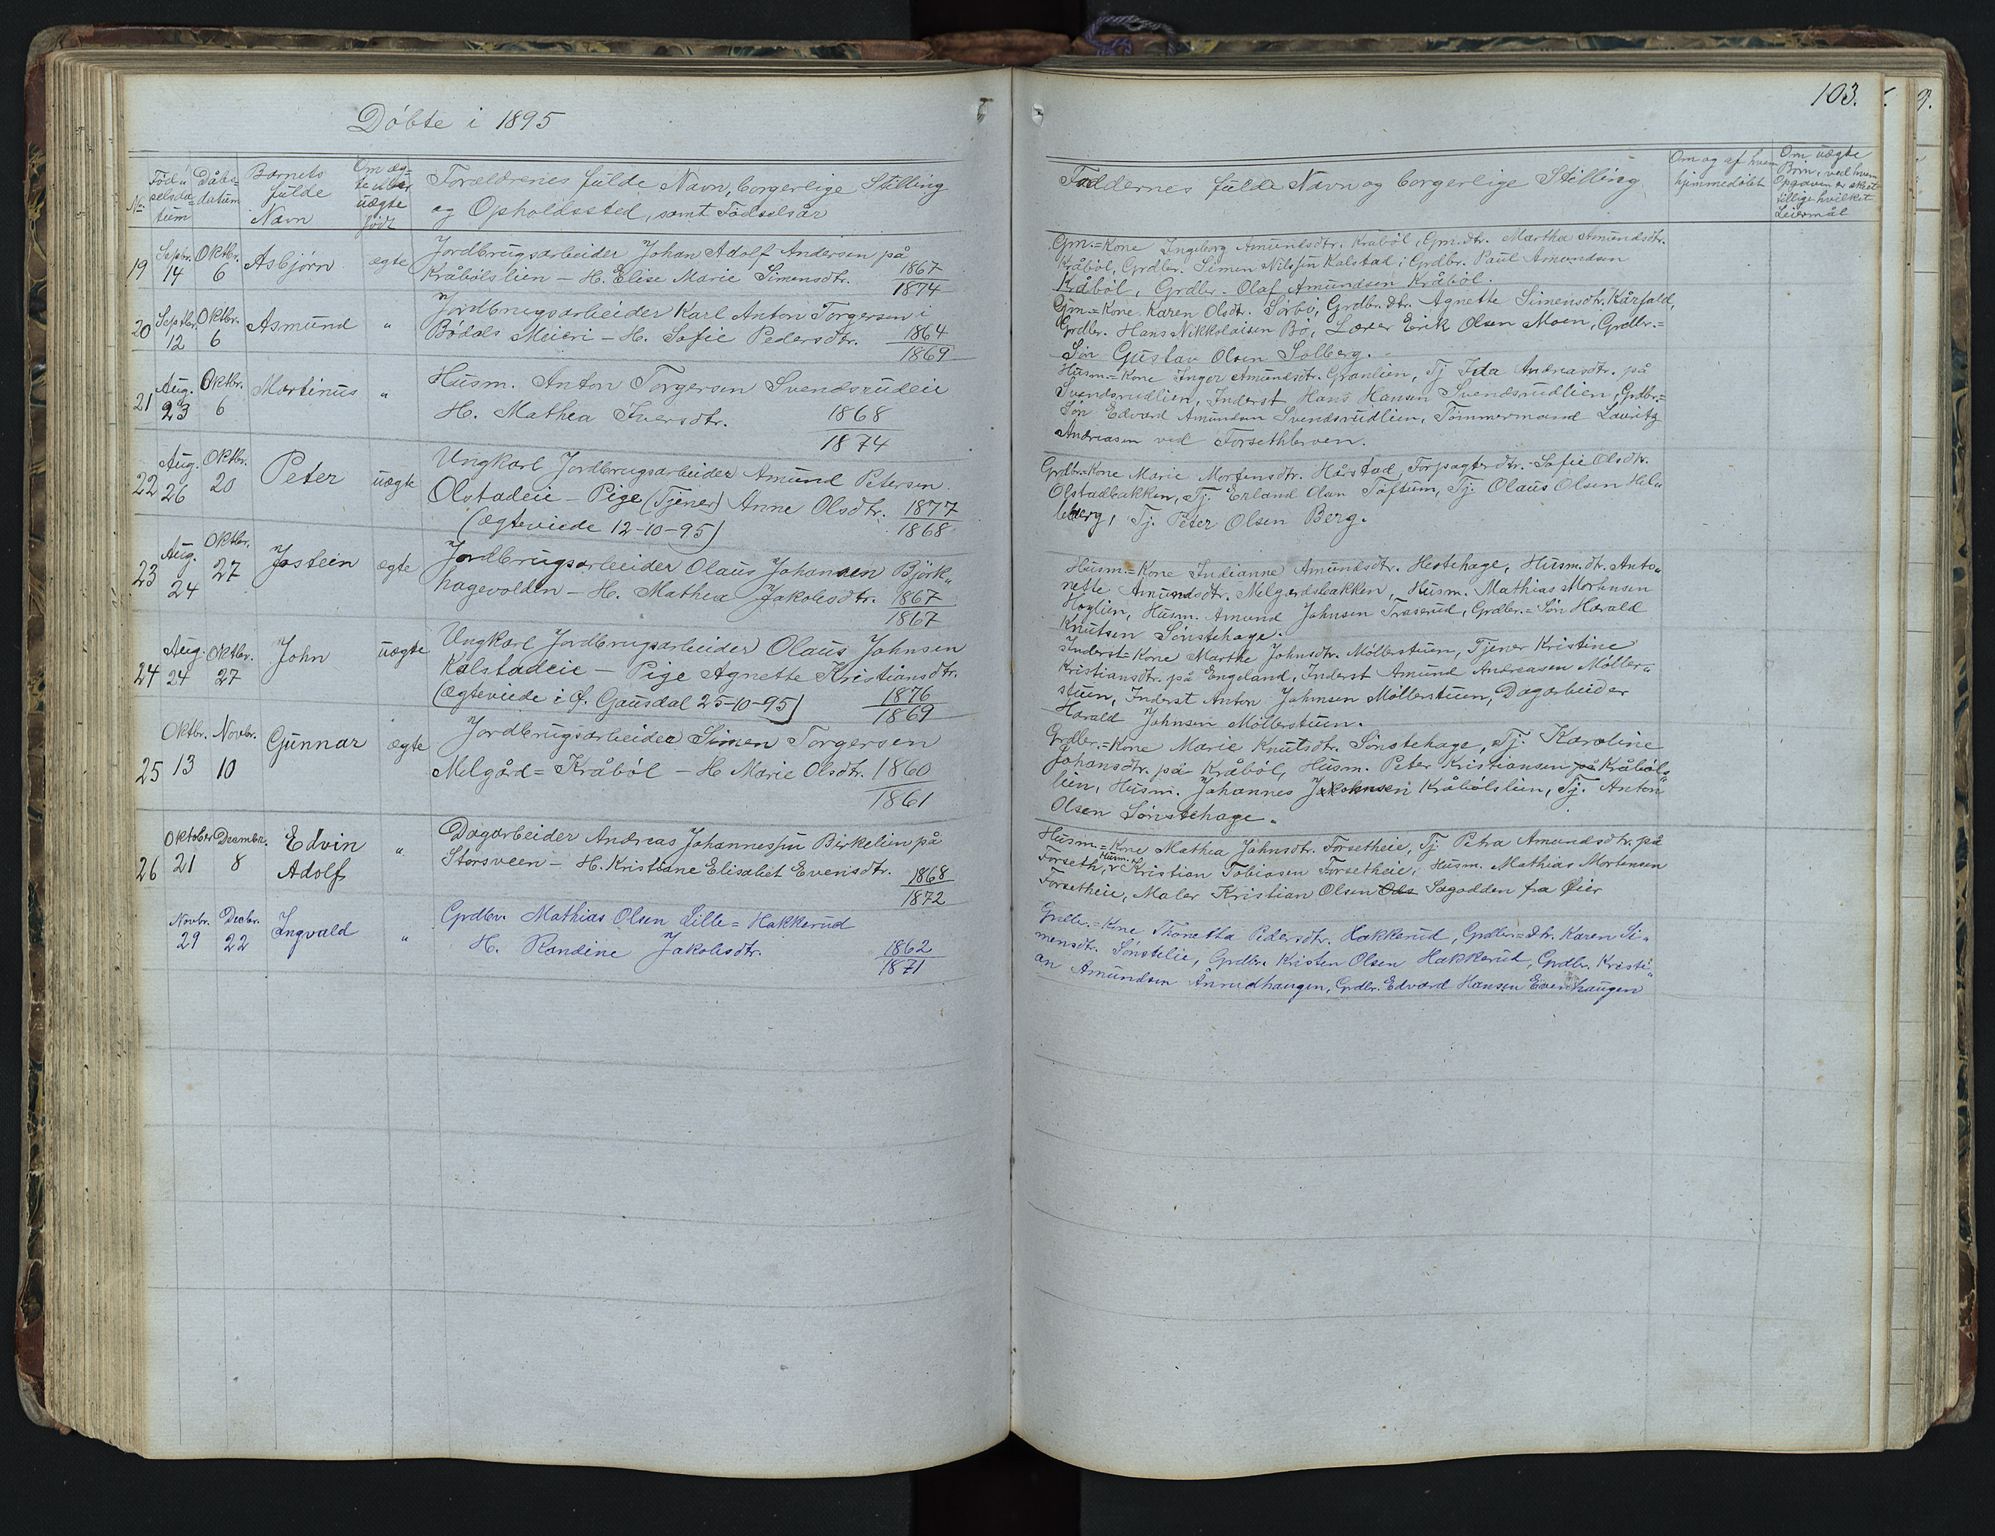 Døbte i 1895
No.
Fød-
selsda-
tum
Dåbs-
datum
Barnets
fulde
Navn
Om æg-
te eller
uægte
født
Forældrenes fulde Navn, borgerlige Stilling
og Opholdssted, samt Fødselsår
19
Septbr.
14
Oktbr.
6
Asbjørn
ægte
Jordbrugsarbeider Johan Adolf Andersen på
Kråbølslien – H. Elise Marie Simensdtr.
1867
1874
20
Septbr.
12
Oktbr.
6
Asmund
"
Jordbrugsarbeider Karl Anton Torgersen i
Bødals Meieri – H. Sofie Pedersdtr.
1864
1869
21
Aug.
23
Oktbr.
6
Martinus
"
Husm. Anton Torgersen Svendsrudeie
H. Mathea Iversdtr.
1868
1874
22
Aug.
26
Oktbr.
20
Peter
uægte
Ungkarl Jordbrugsarbeider Amund Petersen
Olstadeie – Pige (Tjener) Anne Olsdtr. 1877
(ægteviede 12-10-95) 1868
23
Aug.
24
Oktbr.
27
Jostein
ægte
Jordbrugsarbeider Olaus Johansen Björk-
hagevolden – H. Mathea Jakobsdtr. 1867
1867
24
Aug.
24
Oktbr.
27
John
uægte
Ungkarl Jordbrugsarbeider Olaus Johnsen
Kalstadeie – Pige Agnette Kristiansdtr.
(ægteviede i Ø. Gausdal 25-10-95) 1876
1869
25
Oktbr.
13
Novbr.
10
Gunnar
ægte
Jordbrugsarbeider Simen Torgersen
Melgård = Kråböl – H. Marie Olsdtr. 1860
1861
26
Oktober
21
Decembr.
8
Edvin
Adolf
"
Dagarbeider Andreas Johannessen Birkelien på
Storsveen – H. Kristiane Elisabet Evensdtr.
1868
1872
Novbr.
29
Decbr.
22
Ingvald
"
Grdbr. Mathias Olsen Lille = Hakkerud
H. Randine Jakobsdtr.
1862
1871
103.
Faddernes fulde Navn og borgerlige Stilling
Om og af hvem
hjemmedøbt
Om uægte
Børn, ved hvem
Opgaven er skeet
tillige hvilket
Leiermål
Gm.=Kone Ingeborg Amundsdtr. Kraböl, Gm.dtr. Martha Amundsdtr.
Kråböl, Grdbr. Simen Nilssen Kalstad, Grdbr. Paul Amundsen
Kråböl, Grdbr. Olaf Amundsen Kråböl.
Gm.=Kone Karen Olsdtr. Sørbø, Grdbr. dtr. Agnette Simensdtr. Kårfald,
Grdbr. Hans Nikkolaisen Bø, Lærer Erik Olsen Moen, Grdbr.=
Søn Gustav Olsen Solberg.
Husm.=Kone Inger Amundsdtr. Granlien, Tj Ida Andreasdtr. på
Svendsrudlien, Inderst Hans Hansen Svendsrudlien, Grdbr.=
Søn Edvard Amundsen Svendsrudlien, Tømmermand Lauritz
Andreasen ved Forsethbrven.
Grdbr.=Kone Marie Mortensdtr. Hårstad, Forpagterdtr. Sofie Olsdtr.
Olstadbakken, Tj. Erland Olsen Toftum, Tj. Olaus Olsen Hel-
leberg, Tj. Peter Olsen Berg.
Husm.=Kone Indianne Amundsdtr. Hestehage, Husm. dtr. Anto-
nette Amundsdtr. Melgårdsbakken, Husm. Mathias Mortensen
Höglien, Husm. Amund Johnsen Traserud, Grdbr.=Søn Harald
Knutsen Sønstehage.
Inderst=Kone Marthe Johnsdtr. Möllerstuen, Tjener Kristine
Kristiansdtr. på Engeland, Inderst Amund Andreasen Möller-
stuen, Inderst Anton Johnsen Möllerstuen, Dagarbeider
Harald Johnsen Möllerstuen.
Grdbr.=Kone Marie Knutsdtr. Sønstehage, Tj. Karoline
Johansdtr. på Kråböl, Husm. Peter Kristiansen på Kråböls-
lien, Husm. Johannes Kråbölslien, Tj. Anton
Olsen Sønstehage.
Husm.=Kone Mathea Johnsdtr. Forsetheie, Tj Petra Amundsdtr. på
Forseth, Husm. Kristian Tobiasen Forsetheie, Husm. Mathias Mortensen
Forsetheie, Maler Kristian Olsen Sagodden fra Øier
Grdbr.=Kone Thonetha Pedersdtr. Hakkerud, Grdbr=dtr. Karen Si-
mensdtr. Sønstelie, Grdbr. Kristen Olsen Hakkerud, Grdbr. Kristi-
an Amundsen Ånrudhaugen, Grdbr. Edvard Hansen Evenhaugen